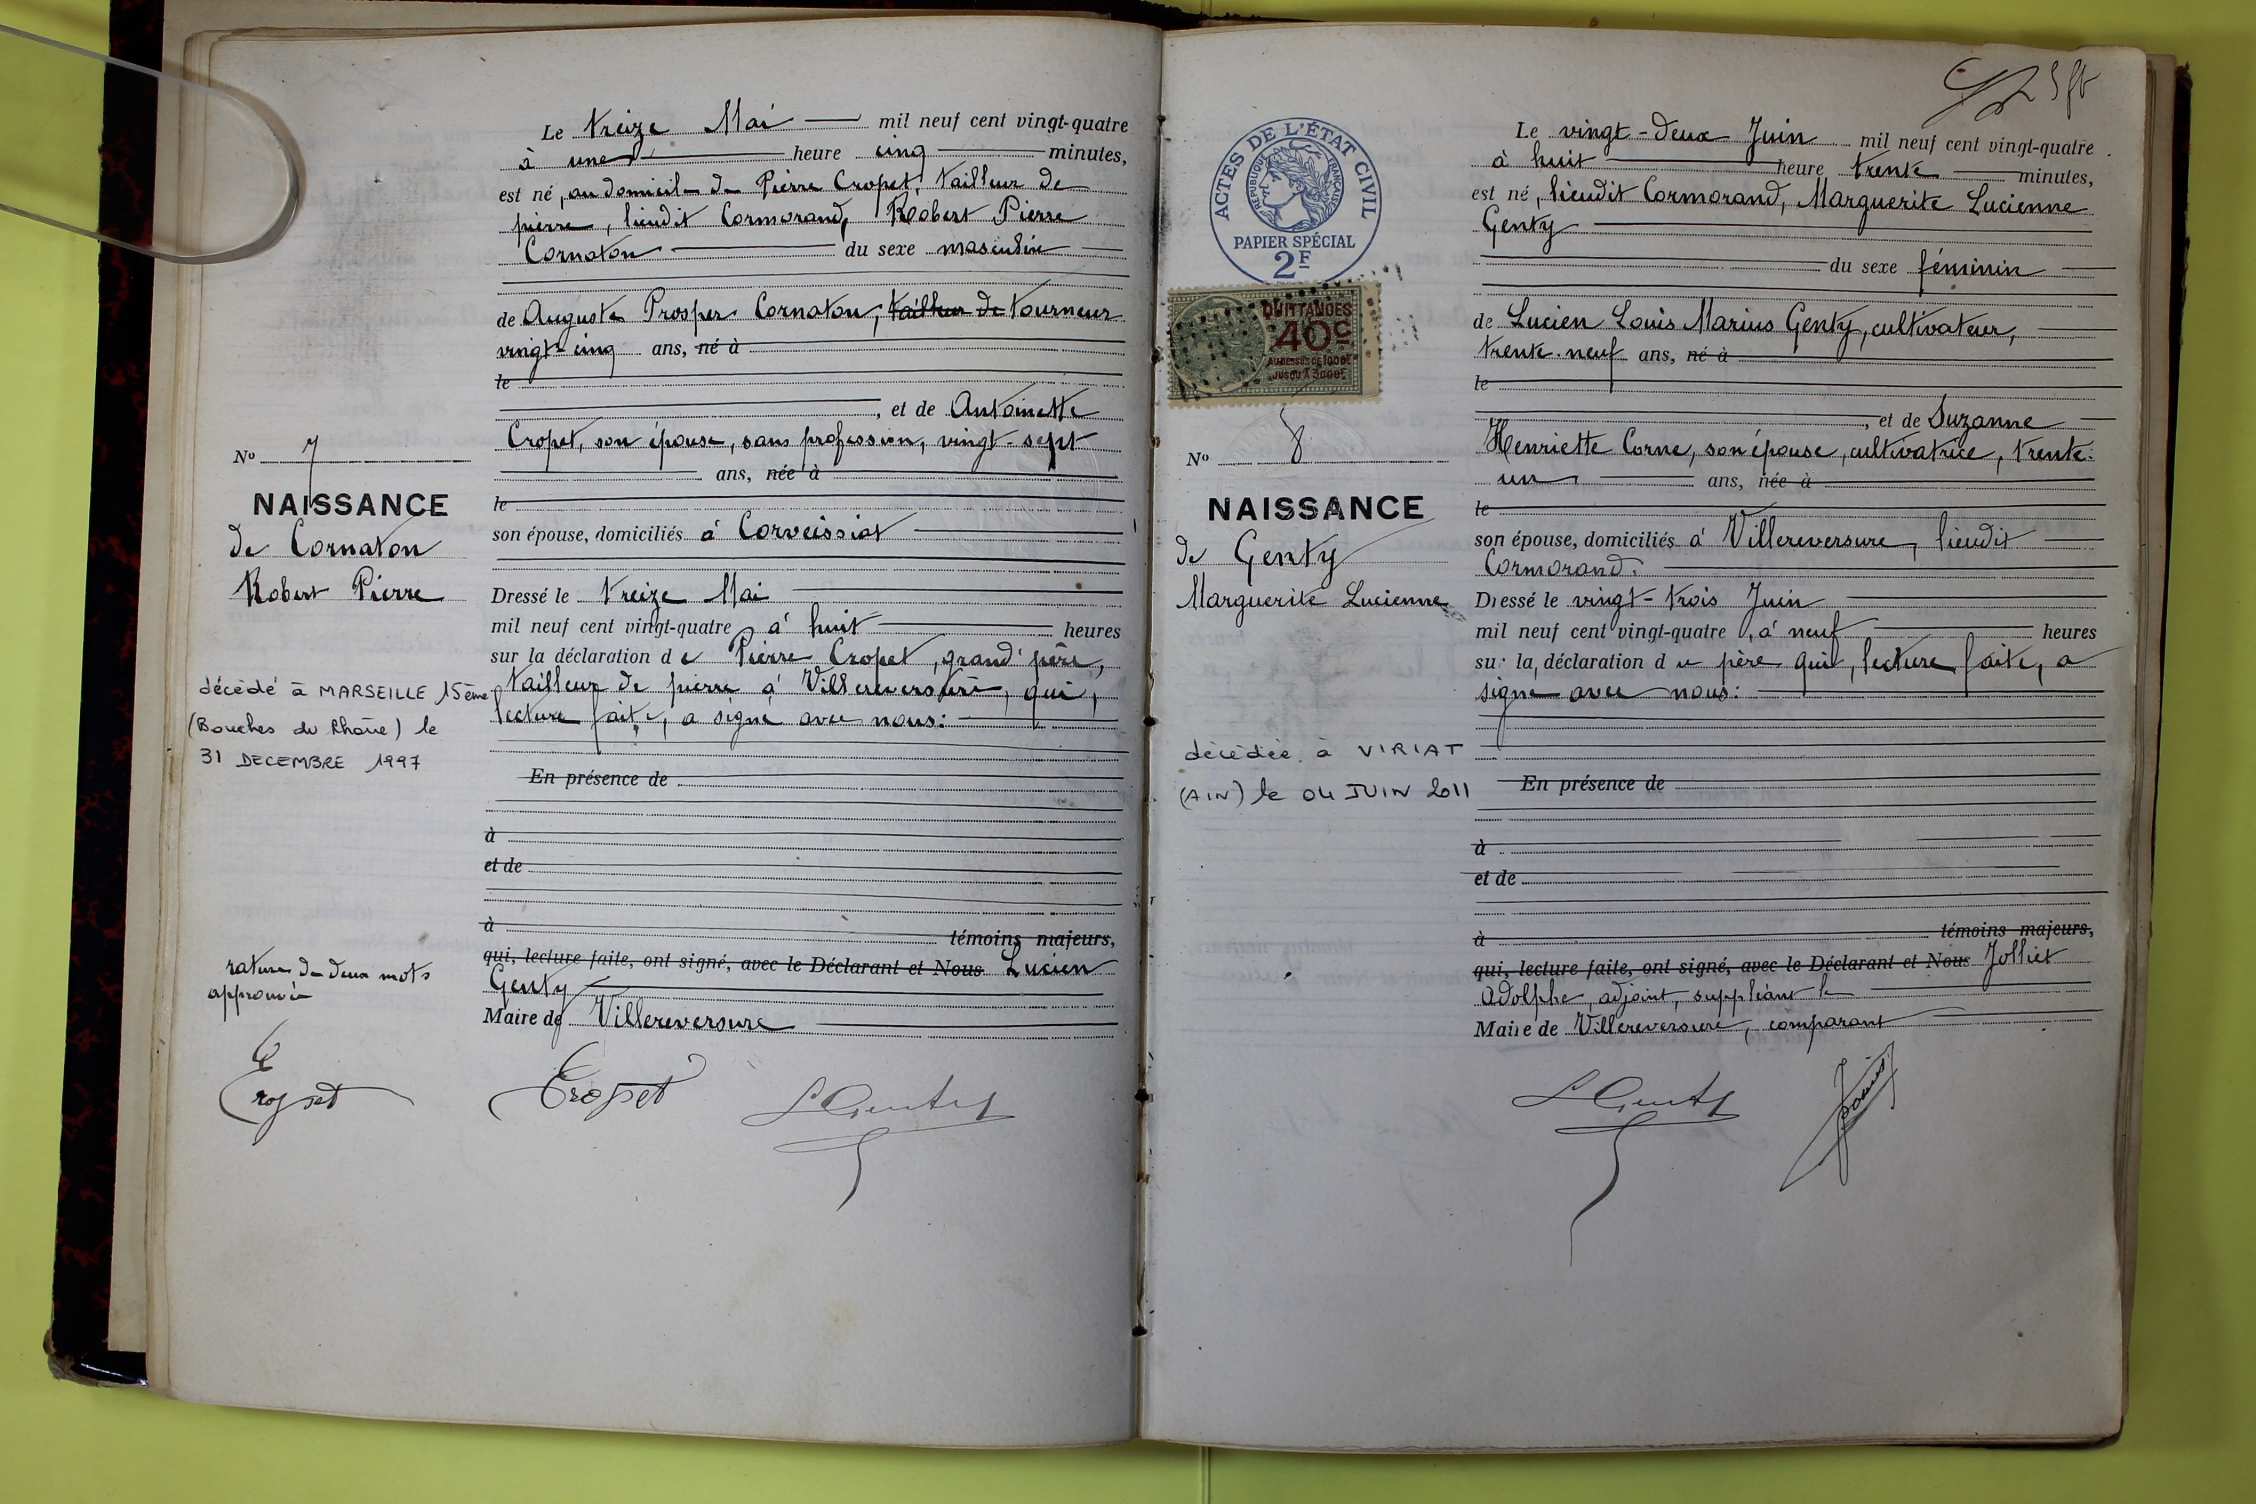 Le treize Mai mil neuf cent vingt-quatre
à une heure cinq minutes,
est né, au domicile de Pierre Cropet, tailleur de
pierre, lieudit Cormorand, Robert Pierre
Cornaton du sexe masculin
de Auguste Prosper Cornaton, tailleur de tourneur
vingt-cinq ans, né à
le
, et de Antoinette
Cropet, son épouse, sans profession, vingt-sept
ans, née à
le
son épouse, domiciliés à Corveissiat
Dressé le treize Mai
mil neuf cent vingt-quatre à huit heures
sur la déclaration de Pierre Cropet, grand'père,
tailleur de pierre à Villereversure, qui,
lecture faite, a signé avec nous:
En présence de
à
et de
à
témoins majeurs,
qui, lecture faite, ont signé, avec le Déclarant et Nous Lucien
Genty
Maire de Villereversure
Nº 7
NAISSANCE
de Cornaton
Robert Pierre
décédé à MARSEILLE 15ème
(Bouches du Rhône) le
31 DECEMBRE 1997
rature de deux mots
approuvée
Cropet
Cropet
L Genty
ACTES DE L'ÉTAT CIVIL
RÉPUBLIQUE FRANÇAISE
PAPIER SPÉCIAL
2F
QUITTANCES
40c
AU DESSUS DE 1000F
JUSQU'A 3000F
Nº 8
NAISSANCE
de Genty
Marguerite Lucienne
décédée à VIRIAT
(AIN) le 04 JUIN 2011
Le vingt-deux Juin mil neuf cent vingt-quatre
à huit heure trente minutes,
est né, lieudit Cormorand, Marguerite Lucienne
Genty
du sexe féminin
de Lucien Louis Marius Genty, cultivateur,
trente-neuf ans, né à
le
, et de Suzanne
Henriette Corne, son épouse, cultivatrice, trente-
un ans, née à
le
son épouse, domiciliés à Villereversure, lieudit
Cormorand.
Dressé le vingt-trois Juin
mil neuf cent vingt-quatre, à neuf heures
sur la déclaration du père qui, lecture faite, a
signé avec nous:
En présence de
à
et de
à
témoins majeurs,
qui, lecture faite, ont signé, avec le Déclarant et Nous Jolliet
Adolphe, adjoint, suppléant le
Maire de Villereversure, comparant
L Genty